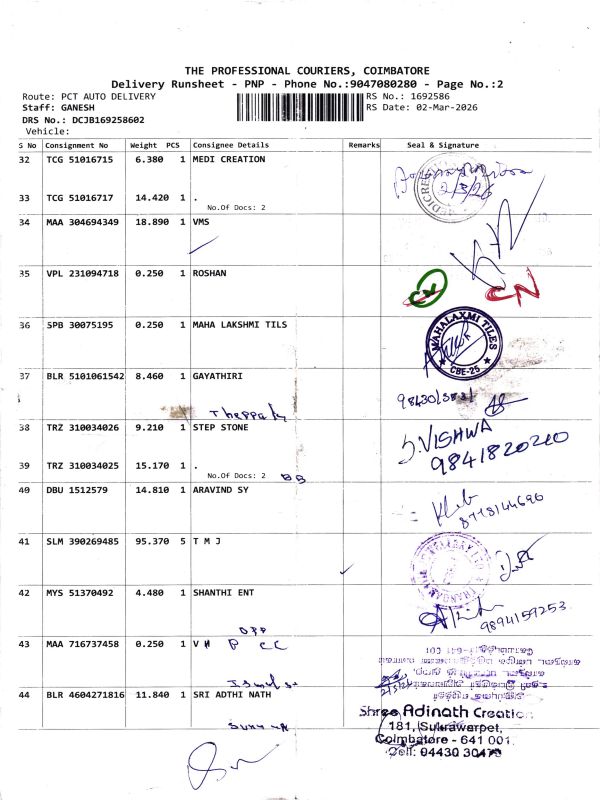 THE PROFESSIONAL COURIERS, COIMBATORE
Delivery Runsheet - PNP - Phone No.:9047080280 - Page No.:2
Route: PCT AUTO DELIVERY
RS No.: 1692586
Staff: GANESH
RS Date: 02-Mar-2026
DRS No.: DCJB169258602
Vehicle:
S No Consignment No Weight PCS Consignee Details Remarks Seal & Signature
32 TCG 51016715 6.380 1 MEDI CREATION
2/3/26
33 TCG 51016717 14.420 1 .
No.Of Docs: 2
34 MAA 304694349 18.890 1 VMS
35 VPL 231094718 0.250 1 ROSHAN
CN CN
36 SPB 30075195 0.250 1 MAHA LAKSHMI TILS
MAHALAXMI TILES
CBE-25
37 BLR 5101061542 8.460 1 GAYATHIRI
38 TRZ 310034026 9.210 1 STEP STONE
S.VISHWA
9841820210
39 TRZ 310034025 15.170 1 .
No.Of Docs: 2 BB
40 DBU 1512579 14.810 1 ARAVIND SY
8778144696
41 SLM 390269485 95.370 5 T M J
42 MYS 51370492 4.480 1 SHANTHI ENT
9894159253
OPP
43 MAA 716737458 0.250 1 V H P CC
44 BLR 4604271816 11.840 1 SRI ADTHI NATH
Shree Adinath Creation
181, Sukrawarpet,
Coimbatore - 641 001.
Cell: 94430 30479